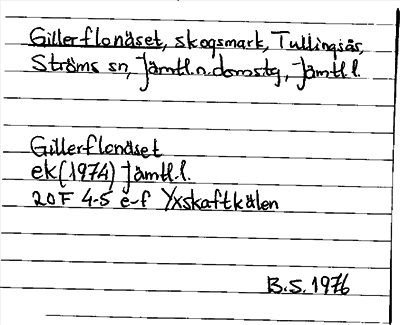 Gillerflonäset, skogsmark, Tullingsås,
Ströms sn, Jämtl.n.domstg, Jämtl.l.
Gillerflonäset
ek (1974) Jämtl.l.
20F 4-5 e-f Yxskaftkälen
B.S. 1976